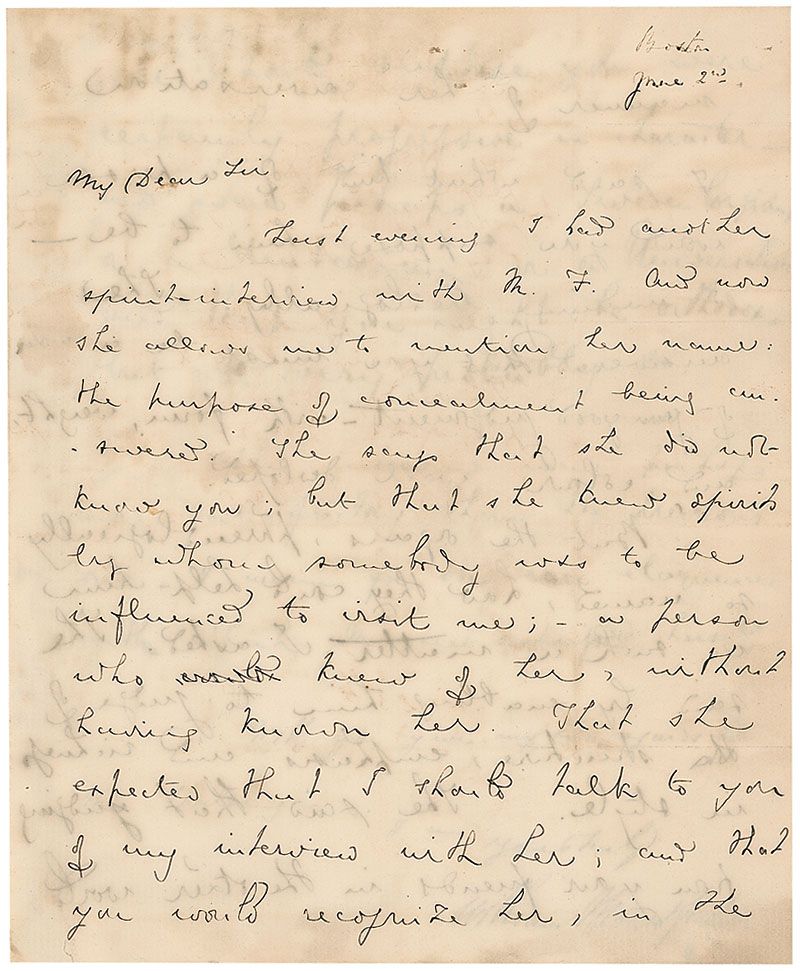 Boston
June 2nd.
My Dear Sir
Last evening I had another
spirit-interview with M. F. And now
she allows me to mention her name:
the purpose of concealment being an-
-swered. She says that she did not
know you; but that she knew spirits
by whom somebody was to be
influenced to visit me; - a person
who would knew of her, without
having known her. That she
expected that I should talk to you
of my interview with her; and that
you would recognize her, in the